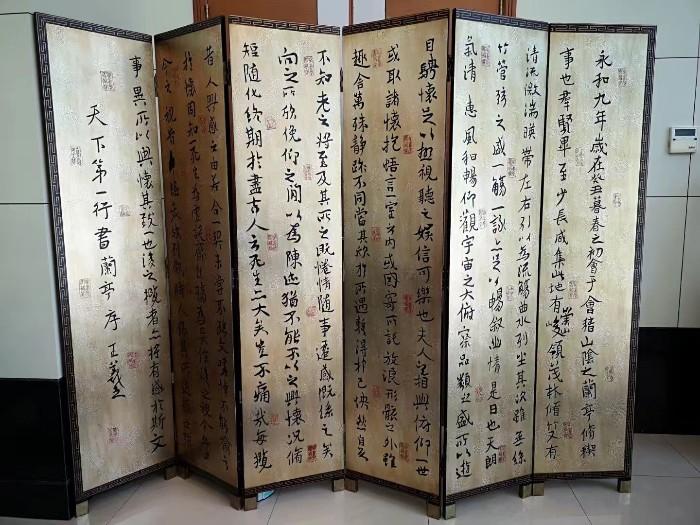 永和九年歲在癸丑暮春之初會于會稽山陰之蘭亭脩禊
事也群賢畢至少長咸集此地有崇山峻領茂林脩竹又有
清流激湍暎帶左右引以為流觴曲水列坐其次雖無絲
竹管弦之盛一觴一詠亦足以暢敘幽情是日也天朗
氣清惠風和暢仰觀宇宙之大俯察品類之盛所以遊
目騁懷足以極視聽之娛信可樂也夫人之相與俯仰一世
或取諸懷抱悟言一室之內或因寄所託放浪形骸之外雖
趣舍萬殊靜躁不同當其欣於所遇暫得於己怏然自足
不知老之將至及其所之既惓情隨事遷感慨係之矣
向之所欣俛仰之閒以為陳迹猶不能不以之興懷況脩
短隨化終期於盡古人云死生亦大矣豈不痛哉每攬
昔人興感之由若合一契未嘗不臨文嗟悼不能喻之
於懷固知一死生為虛誕齊彭殤為妄作後之視今亦由
今之視昔悲夫故列敘時人錄其所述雖世殊
事異所以興懷其致一也後之攬者亦將有感於斯文
天下第一行書蘭亭序 王羲之